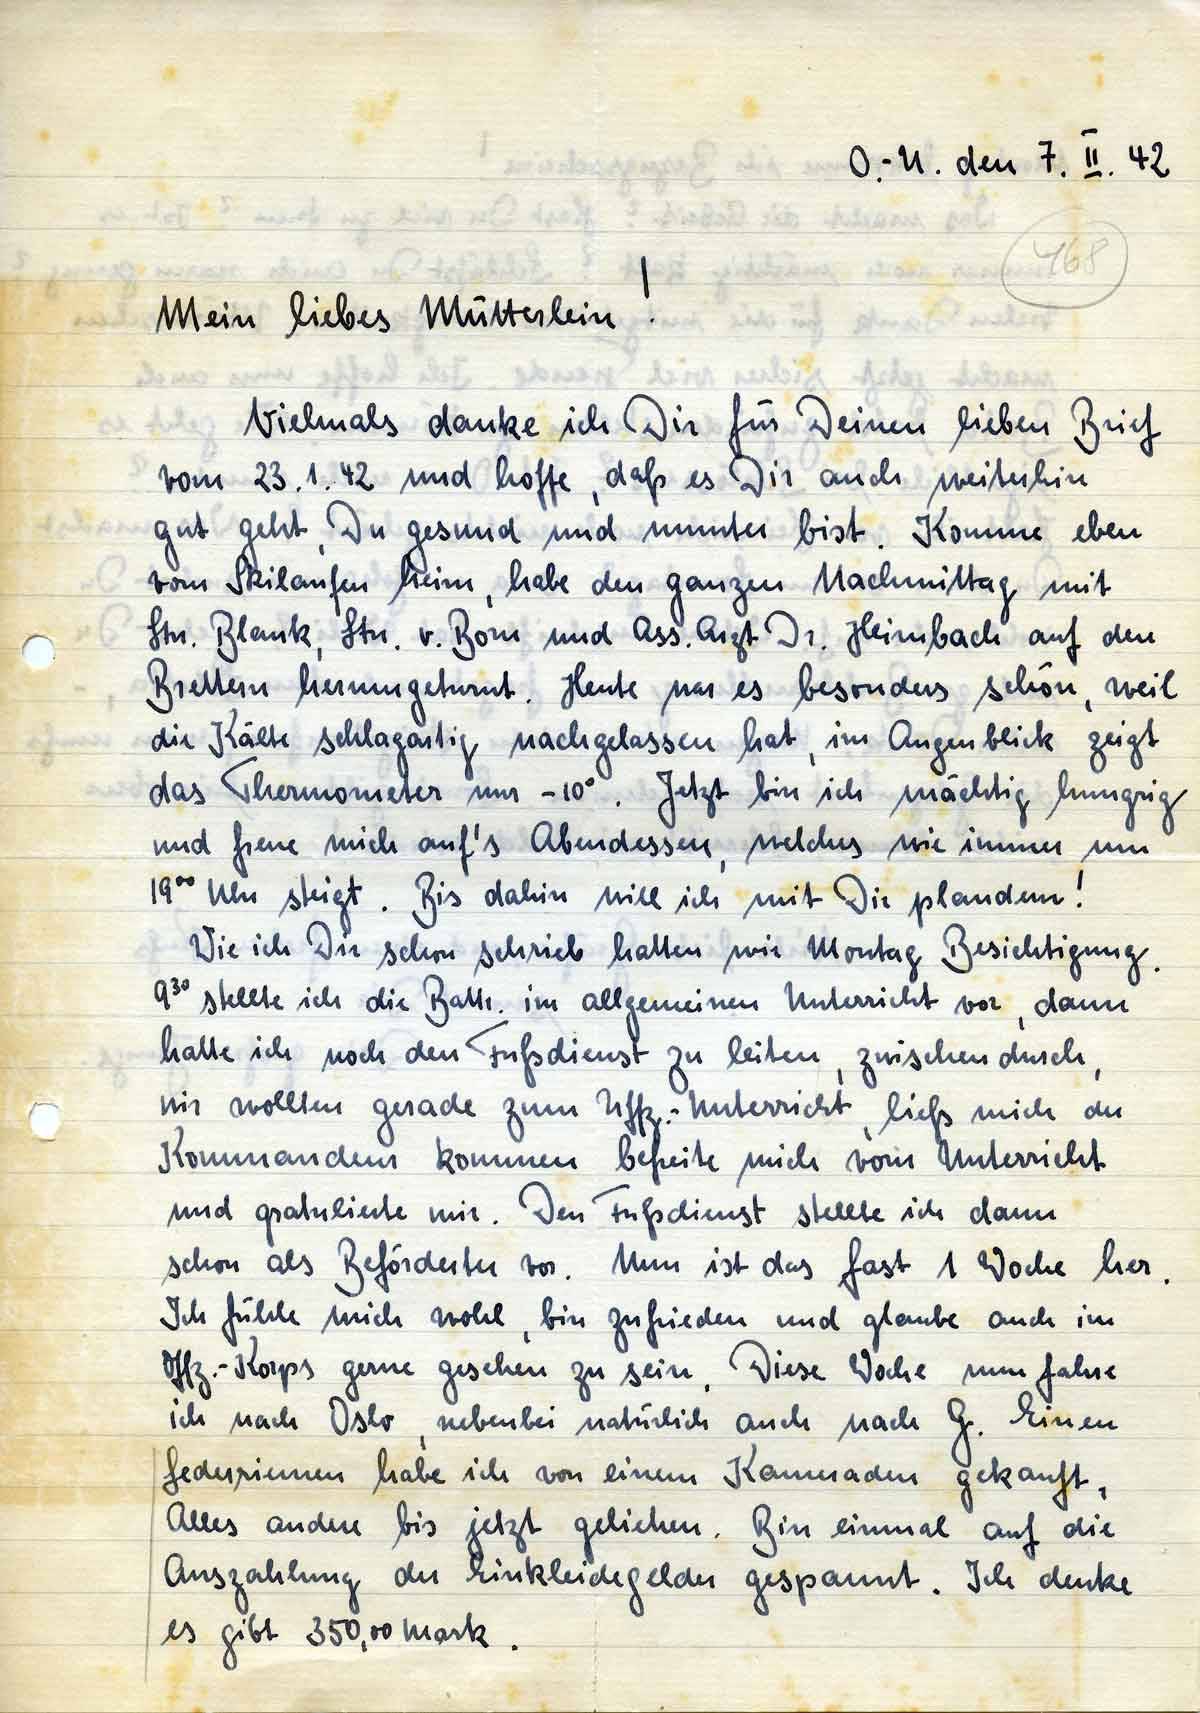 O.-U. den 7. II. 42
468
Mein liebes Mütterlein!
Vielmals danke ich Dir für Deinen lieben Brief
vom 23.1.42 und hoffe, daß es Dir auch weiterhin
gut geht, Du gesund und munter bist. Komme eben
vom Skilaufen heim, habe den ganzen Nachmittag mit
Ltn. Blank, Ltn. v. Born und Ass. Arzt Dr. Heimbach auf den
Brettern herumgeturnt. Heute war es besonders schön, weil
die Kälte schlagartig nachgelassen hat, im Augenblick zeigt
das Thermometer nur -10°. Jetzt bin ich mächtig hungrig
und freue mich auf's Abendessen, welches wie immer um
19⁰⁰ Uhr steigt. Bis dahin will ich mit Dir plaudern!
Wie ich Dir schon schrieb hatten wir Montag Besichtigung.
9³⁰ stellte ich die Battr. im allgemeinen Unterricht vor, dann
hatte ich noch den Fußdienst zu leiten, zwischendurch,
wir wollten gerade zum Uffz.-Unterricht, ließ mich der
Kommandeur kommen befreite mich vom Unterricht
und gratulierte mir. Den Fußdienst stellte ich dann
schon als Beförderter vor. Nun ist das fast 1 Woche her.
Ich fühle mich wohl, bin zufrieden und glaube auch im
Offz.-Korps gerne gesehen zu sein. Diese Woche nun fahre
ich nach Oslo, nebenbei natürlich auch nach G. Einen
Lederriemen habe ich von einem Kameraden gekauft,
Alles andere bis jetzt geliehen. Bin einmal auf die
Auszahlung der Einkleidegelder gespannt. Ich denke
es gibt 350,00 Mark.